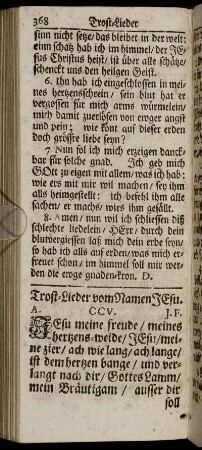 368 Trost-Lieder
sinn nicht setze/das bleibet in der welt:
einn schatz hab ich im himmel/ der JE-
sus Christus heist/ ist über alle schätze/
schenckt uns den heilgen Geist.
6. Ihn hab ich eingeschlossen in mei-
nes hertzensschrein/ sein blut hat er
vergossen für mich arms würmelein/
mich damit zuerlösen von ewger angst
und pein: wie könt auf dieser erden
doch grösser liebe seyn?
7. Nun sol ich mich erzeigen danck-
bar für solche gnad. Ich geb mich
GOtt zu eigen mit allem/ was ich hab:
wie ers mit mir wil machen/ sey ihm
als heimgestellt: ich befehl ihm alle
sachen/ er machs/ wies ihm gefällt.
8. Amen/ nun wil ich schliessen diß
schlechte liedelein/ HErr/ durch dein
blutvergiessen laß mich dein erbe seyn/
so hab ich alls auf erden/ was mich er-
freuet schon/ im himmel soll mir wer-
den die ewge gnaden-kron. D.
Trost-Lieder vom Namen JEsu.
A. CCV. J.F.
JEsu meine freude/ meines
hertzens-weide/ JEsu/ mei-
ne zier/ ach wie lang/ ach lange/
ist dem hertzen bange/ und ver-
langt nach dir/ Gottes Lamm/
mein Bräutigam/ ausser dir
soll